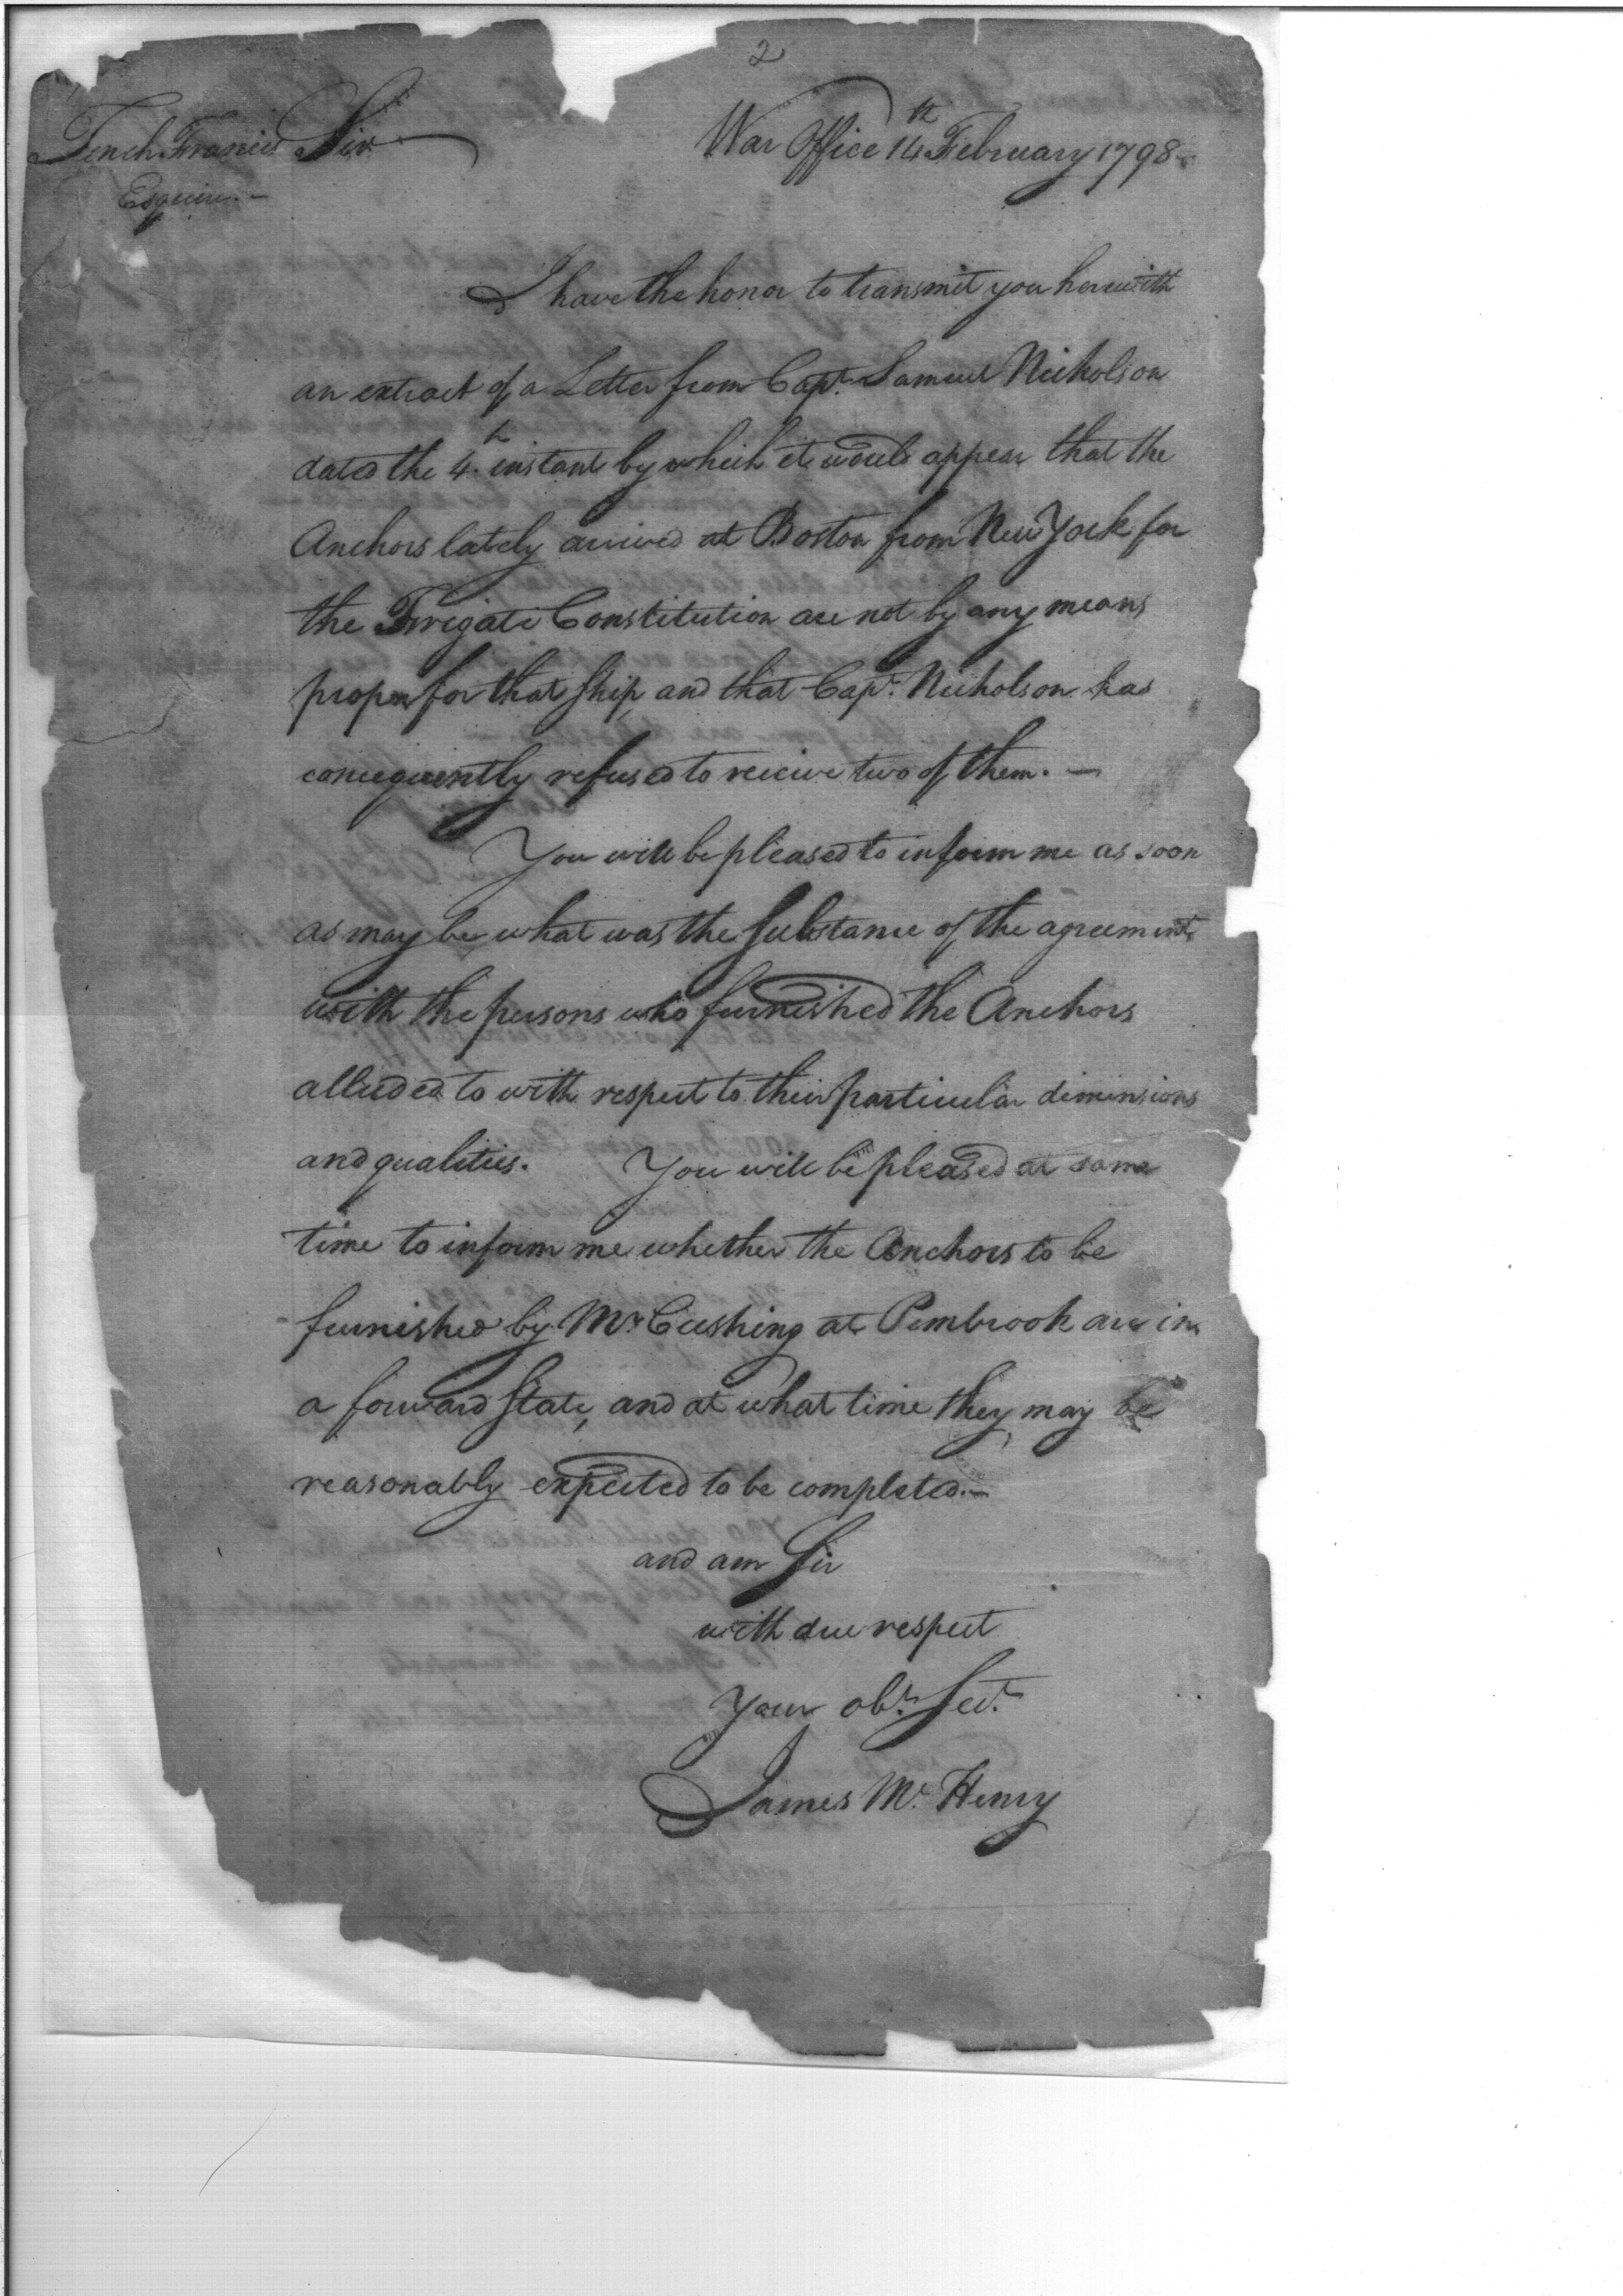 2
Tench Francis Sir War Office 14th February 1798
Esquire
I have the honor to transmit you herewith
an extract of a Letter from Capt. Samuel Nicholson
dated the 4th instant by which it would appear that the
Anchors lately arrived at Boston from New York for
the Frigate Constitution are not by any means
proper for that Ship, and that Capt. Nicholson has
consequently refused to receive two of them. —
You will be pleased to inform me as soon
as may be what was the Substance of the agreement
with the persons who furnished the Anchors
alluded to with respect to their particular dimensions
and qualities. You will be pleased at same
time to inform me whether the Anchors to be
furnished by Mr Cushing at Pembrook are in
a forward State, and at what time they may be
reasonably expected to be completed. —
and am Sir
with due respect
Your obt. Sert.
James Mc. Henry